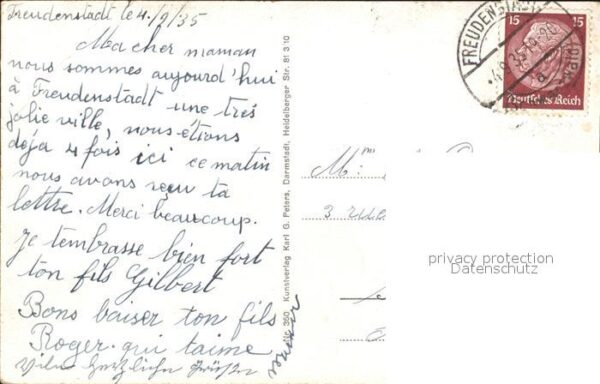 Freudenstadt le 4/9/35
Ma cher maman
nous sommes aujourd'hui
à Freudenstadt une très
jolie ville, nous étions
déja 4 fois ici ce matin
nous avons reçu ta
lettre. Merci beaucoup.
Je tembrasse bien fort
ton fils Gilbert
Bons baiser ton fils
Roger qui taime
Viele herzliche Grüße
No. 360 Kunstverlag Karl G. Peters, Darmstadt, Heidelberger Str. 81 3 10
FREUDENSTADT
15 15
Deutsches Reich
Mme
3 rue
privacy protection
Datenschutz